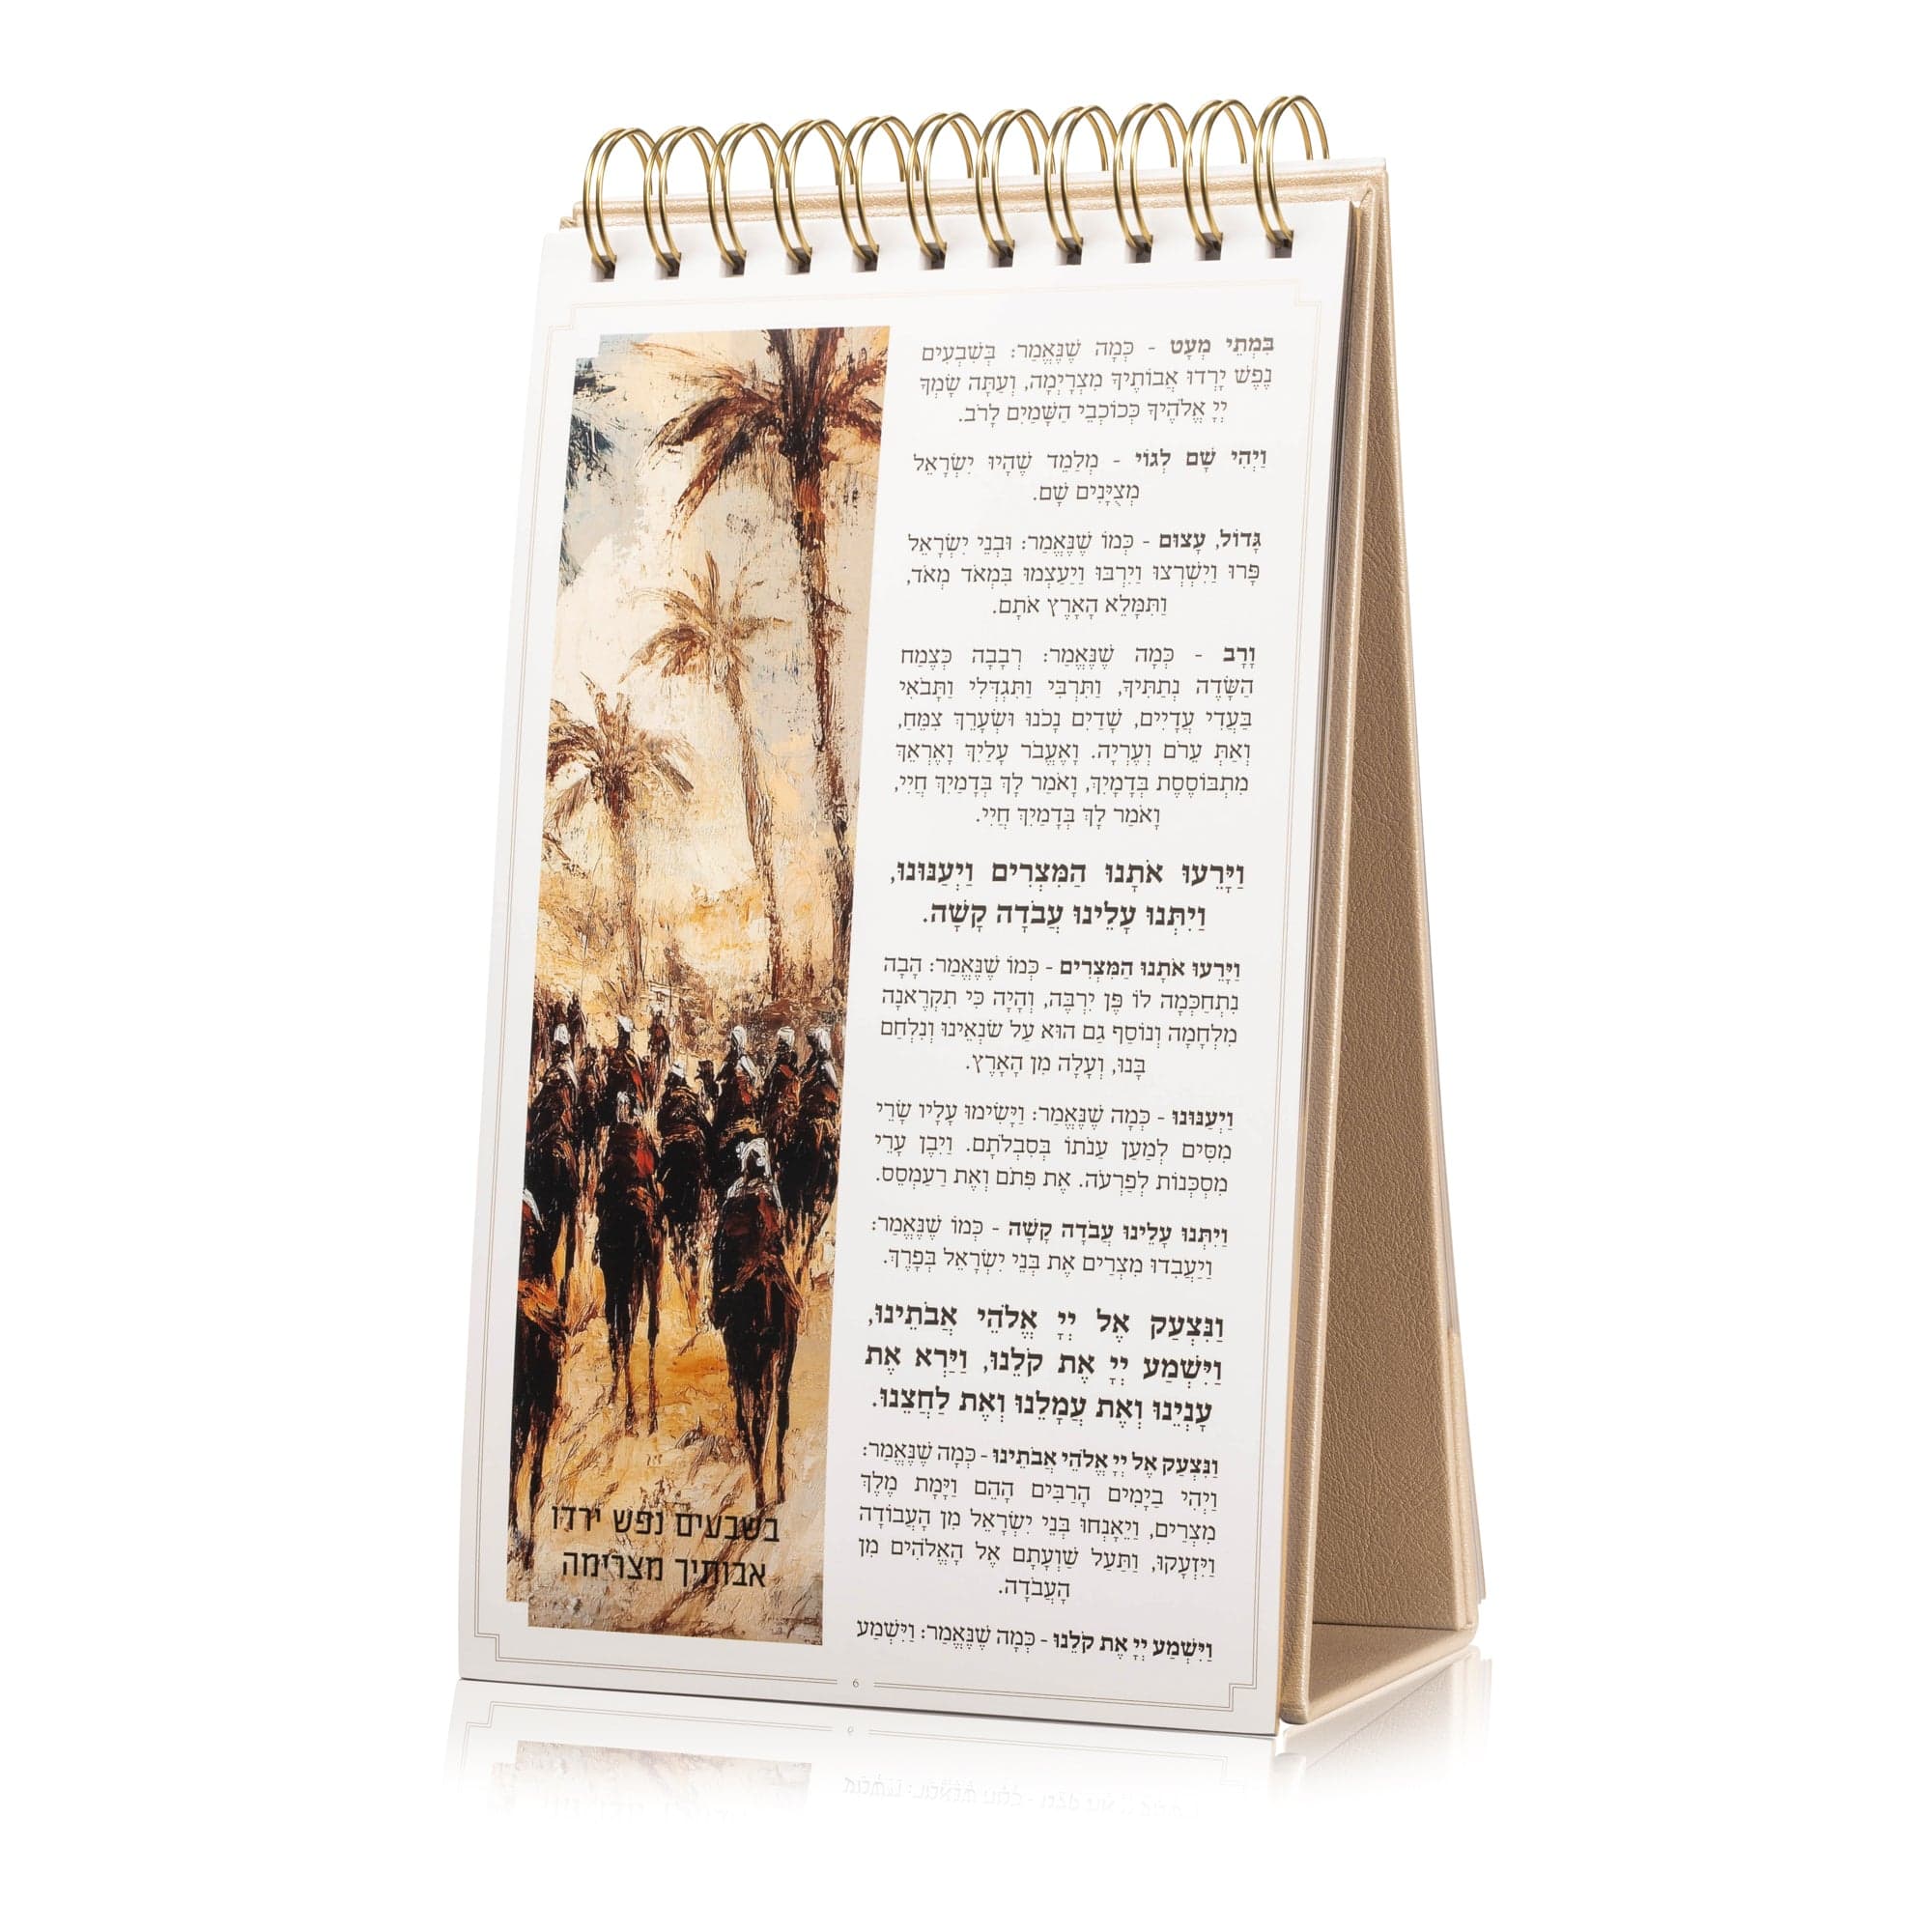 בִּמְתֵי מְעָט - כְּמָה שֶׁנֶּאֱמַר: בְּשִׁבְעִים
נֶפֶשׁ יָרְדוּ אֲבוֹתֶיךָ מִצְרָיְמָה, וְעַתָּה שָׂמְךָ
יְיָ אֱלֹהֶיךָ כְּכוֹכְבֵי הַשָּׁמַיִם לָרֹב.
וַיְהִי שָׁם לְגוֹי - מְלַמֵּד שֶׁהָיוּ יִשְׂרָאֵל
מְצֻיָּנִים שָׁם.
גָּדוֹל, עָצוּם - כְּמוֹ שֶׁנֶּאֱמַר: וּבְנֵי יִשְׂרָאֵל
פָּרוּ וַיִּשְׁרְצוּ וַיִּרְבּוּ וַיַּעַצְמוּ בִּמְאֹד מְאֹד,
וַתִּמָּלֵא הָאָרֶץ אֹתָם.
וָרָב - כְּמָה שֶׁנֶּאֱמַר: רְבָבָה כְּצֶמַח
הַשָּׂדֶה נְתַתִּיךְ, וַתִּרְבִּי וַתִּגְדְּלִי וַתָּבֹאִי
בַּעֲדִי עֲדָיִים, שָׁדַיִם נָכֹנוּ וּשְׂעָרֵךְ צִמֵּחַ,
וְאַתְּ עֵרֹם וְעֶרְיָה. וָאֶעֱבֹר עָלַיִךְ וָאֶרְאֵךְ
מִתְבּוֹסֶסֶת בְּדָמָיִךְ, וָאֹמַר לָךְ בְּדָמַיִךְ חֲיִי,
וָאֹמַר לָךְ בְּדָמַיִךְ חֲיִי.
וַיָּרֵעוּ אֹתָנוּ הַמִּצְרִים וַיְעַנּוּנוּ,
וַיִּתְּנוּ עָלֵינוּ עֲבֹדָה קָשָׁה.
וַיָּרֵעוּ אֹתָנוּ הַמִּצְרִים - כְּמוֹ שֶׁנֶּאֱמַר: הָבָה
נִתְחַכְּמָה לוֹ פֶּן יִרְבֶּה, וְהָיָה כִּי תִקְרֶאנָה
מִלְחָמָה וְנוֹסַף גַּם הוּא עַל שֹׂנְאֵינוּ וְנִלְחַם
בָּנוּ, וְעָלָה מִן הָאָרֶץ.
וַיְעַנּוּנוּ - כְּמָה שֶׁנֶּאֱמַר: וַיָּשִׂימוּ עָלָיו שָׂרֵי
מִסִּים לְמַעַן עַנֹּתוֹ בְּסִבְלֹתָם. וַיִּבֶן עָרֵי
מִסְכְּנוֹת לְפַרְעֹה. אֶת פִּתֹם וְאֶת רַעַמְסֵס.
וַיִּתְּנוּ עָלֵינוּ עֲבֹדָה קָשָׁה - כְּמוֹ שֶׁנֶּאֱמַר:
וַיַּעֲבִדוּ מִצְרַיִם אֶת בְּנֵי יִשְׂרָאֵל בְּפָרֶךְ.
וַנִּצְעַק אֶל יְיָ אֱלֹהֵי אֲבֹתֵינוּ,
וַיִּשְׁמַע יְיָ אֶת קֹלֵנוּ, וַיַּרְא אֶת
עָנְיֵנוּ וְאֶת עֲמָלֵנוּ וְאֶת לַחֲצֵנוּ.
וַנִּצְעַק אֶל יְיָ אֱלֹהֵי אֲבֹתֵינוּ - כְּמָה שֶׁנֶּאֱמַר:
וַיְהִי בַיָּמִים הָרַבִּים הָהֵם וַיָּמָת מֶלֶךְ
מִצְרַיִם, וַיֵּאָנְחוּ בְּנֵי יִשְׂרָאֵל מִן הָעֲבוֹדָה
וַיִּזְעָקוּ, וַתַּעַל שַׁוְעָתָם אֶל הָאֱלֹהִים מִן
הָעֲבֹדָה.
וַיִּשְׁמַע יְיָ אֶת קֹלֵנוּ - כְּמָה שֶׁנֶּאֱמַר: וַיִּשְׁמַע
בשבעים נפש ירדו
אבותיך מצרימה
6